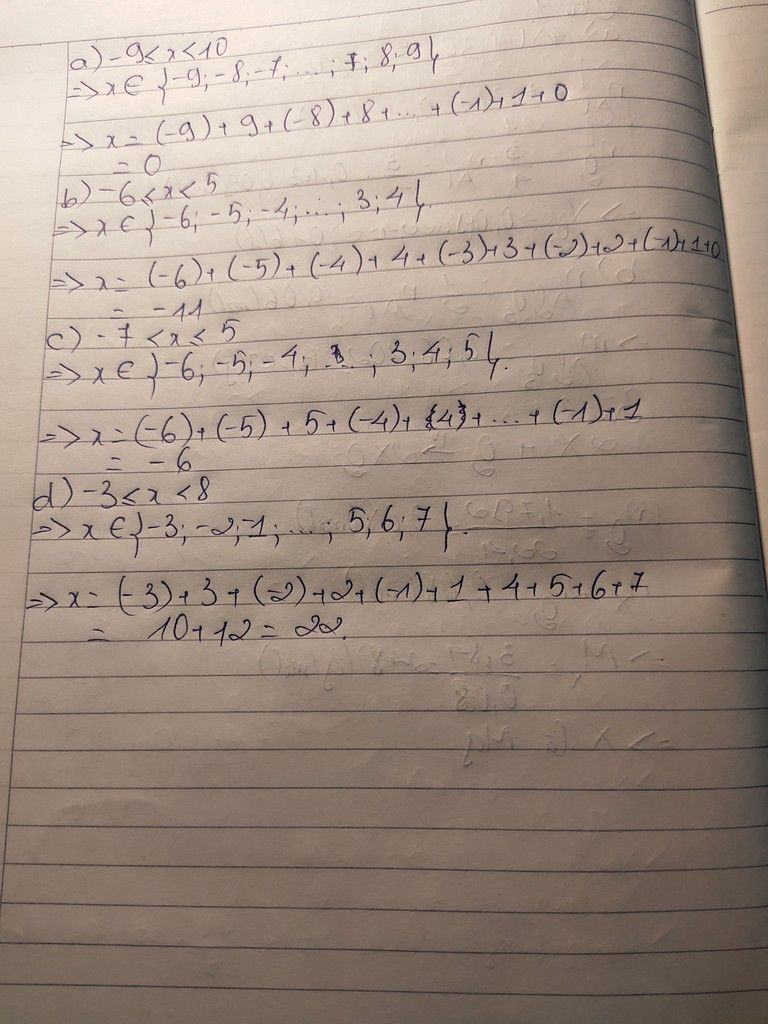 a) -9 ≤ x < 10
=> x ∈ {-9; -8; -7; ....; 7; 8; 9}
=> x = (-9) + 9 + (-8) + 8 + ... + (-1) + 1 + 0
= 0
b) -6 ≤ x < 5
=> x ∈ {-6; -5; -4; ....; 3; 4}.
=> x = (-6) + (-5) + (-4) + 4 + (-3) + 3 + (-2) + 2 + (-1) + 1 + 0
= -11
c) -7 < x ≤ 5
=> x ∈ {-6; -5; -4; ...; 3; 4; 5}.
=> x = (-6) + (-5) + 5 + (-4) + 4 + ... + (-1) + 1
= -6
d) -3 ≤ x < 8
=> x ∈ {-3; -2; -1; ....; 5; 6; 7}.
=> x = (-3) + 3 + (-2) + 2 + (-1) + 1 + 4 + 5 + 6 + 7
= 10 + 12 = 22.